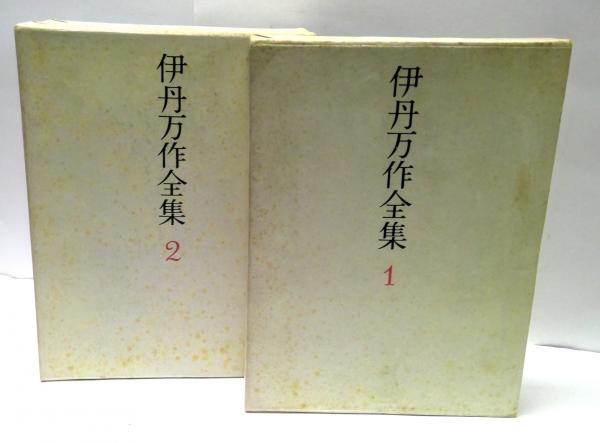 伊丹万作全集
2
伊丹万作全集
1